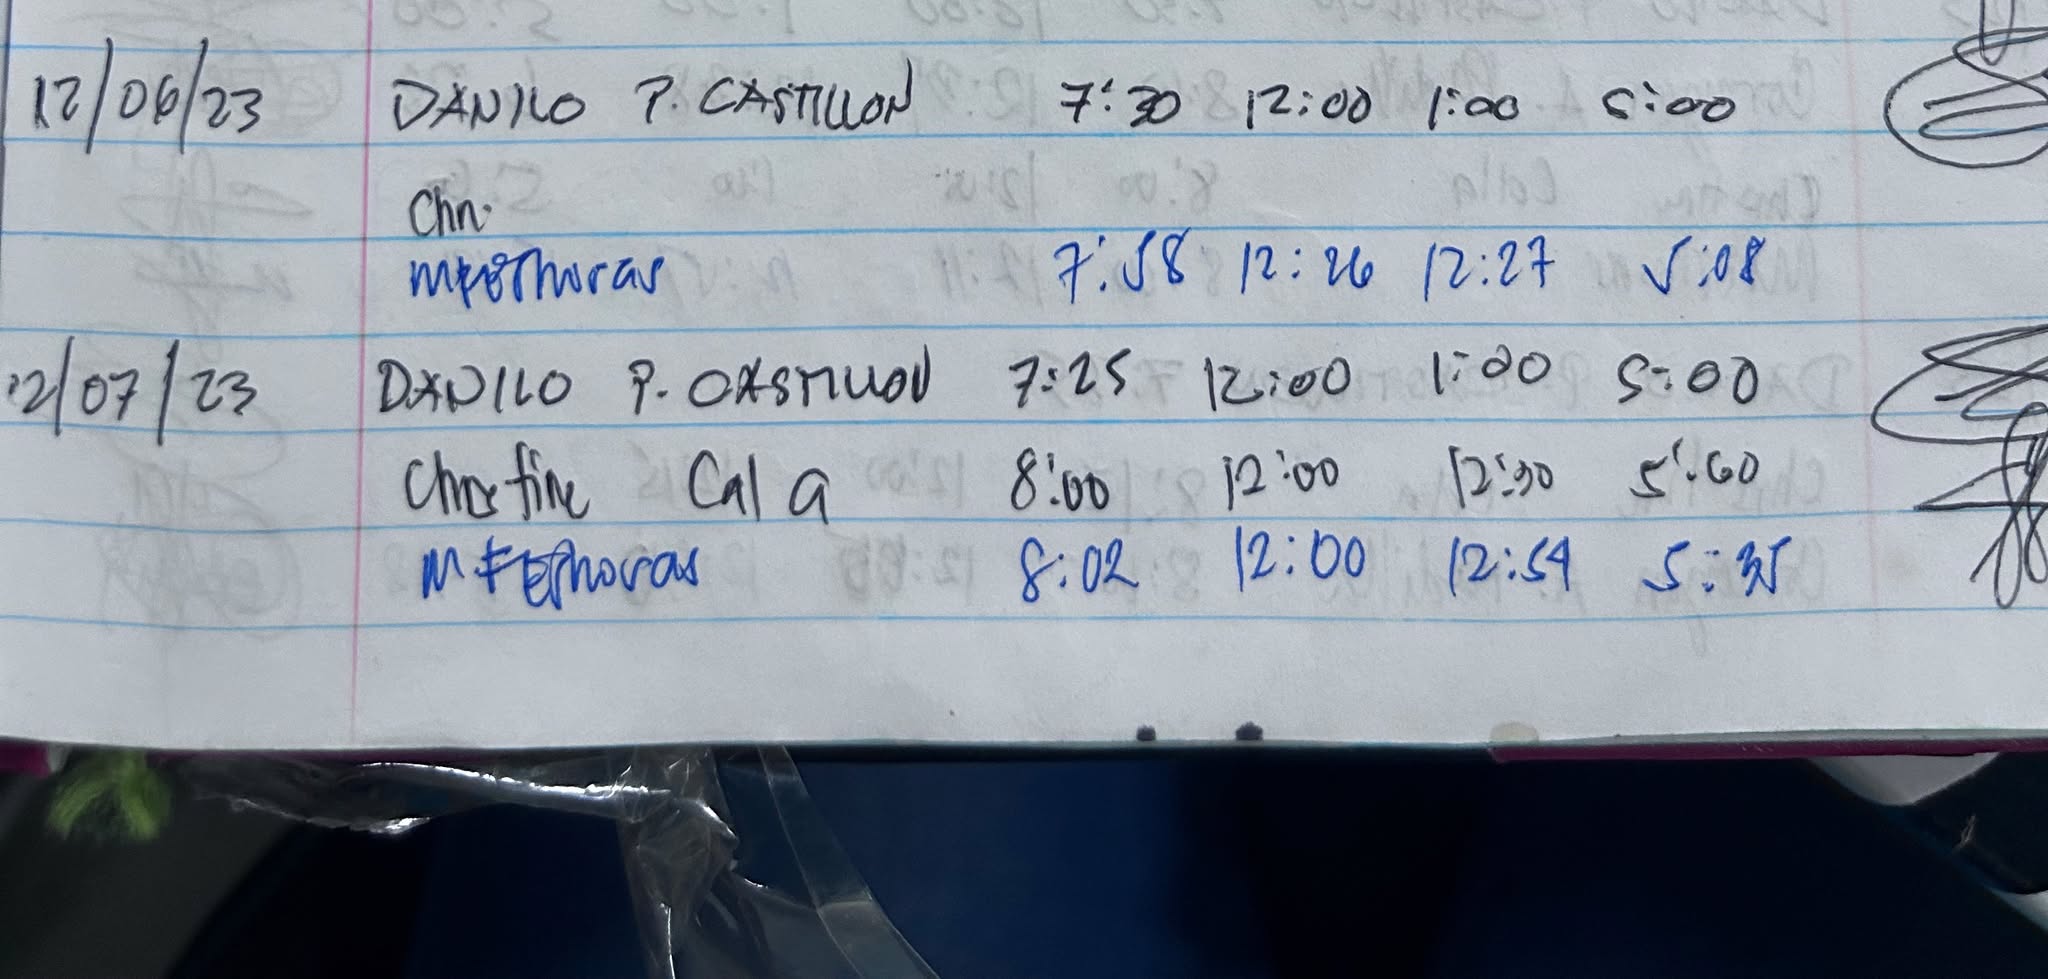 12/06/23 DANILO P. CASTILLON 7:30 12:00 1:00 5:00
Chn.
7:58 12:26 12:27 5:08
12/07/23 DANILO P. CASTILLON 7:25 12:00 1:00 5:00
Christine Cala 8:00 12:00 12:30 5:00
8:02 12:00 12:54 5:35